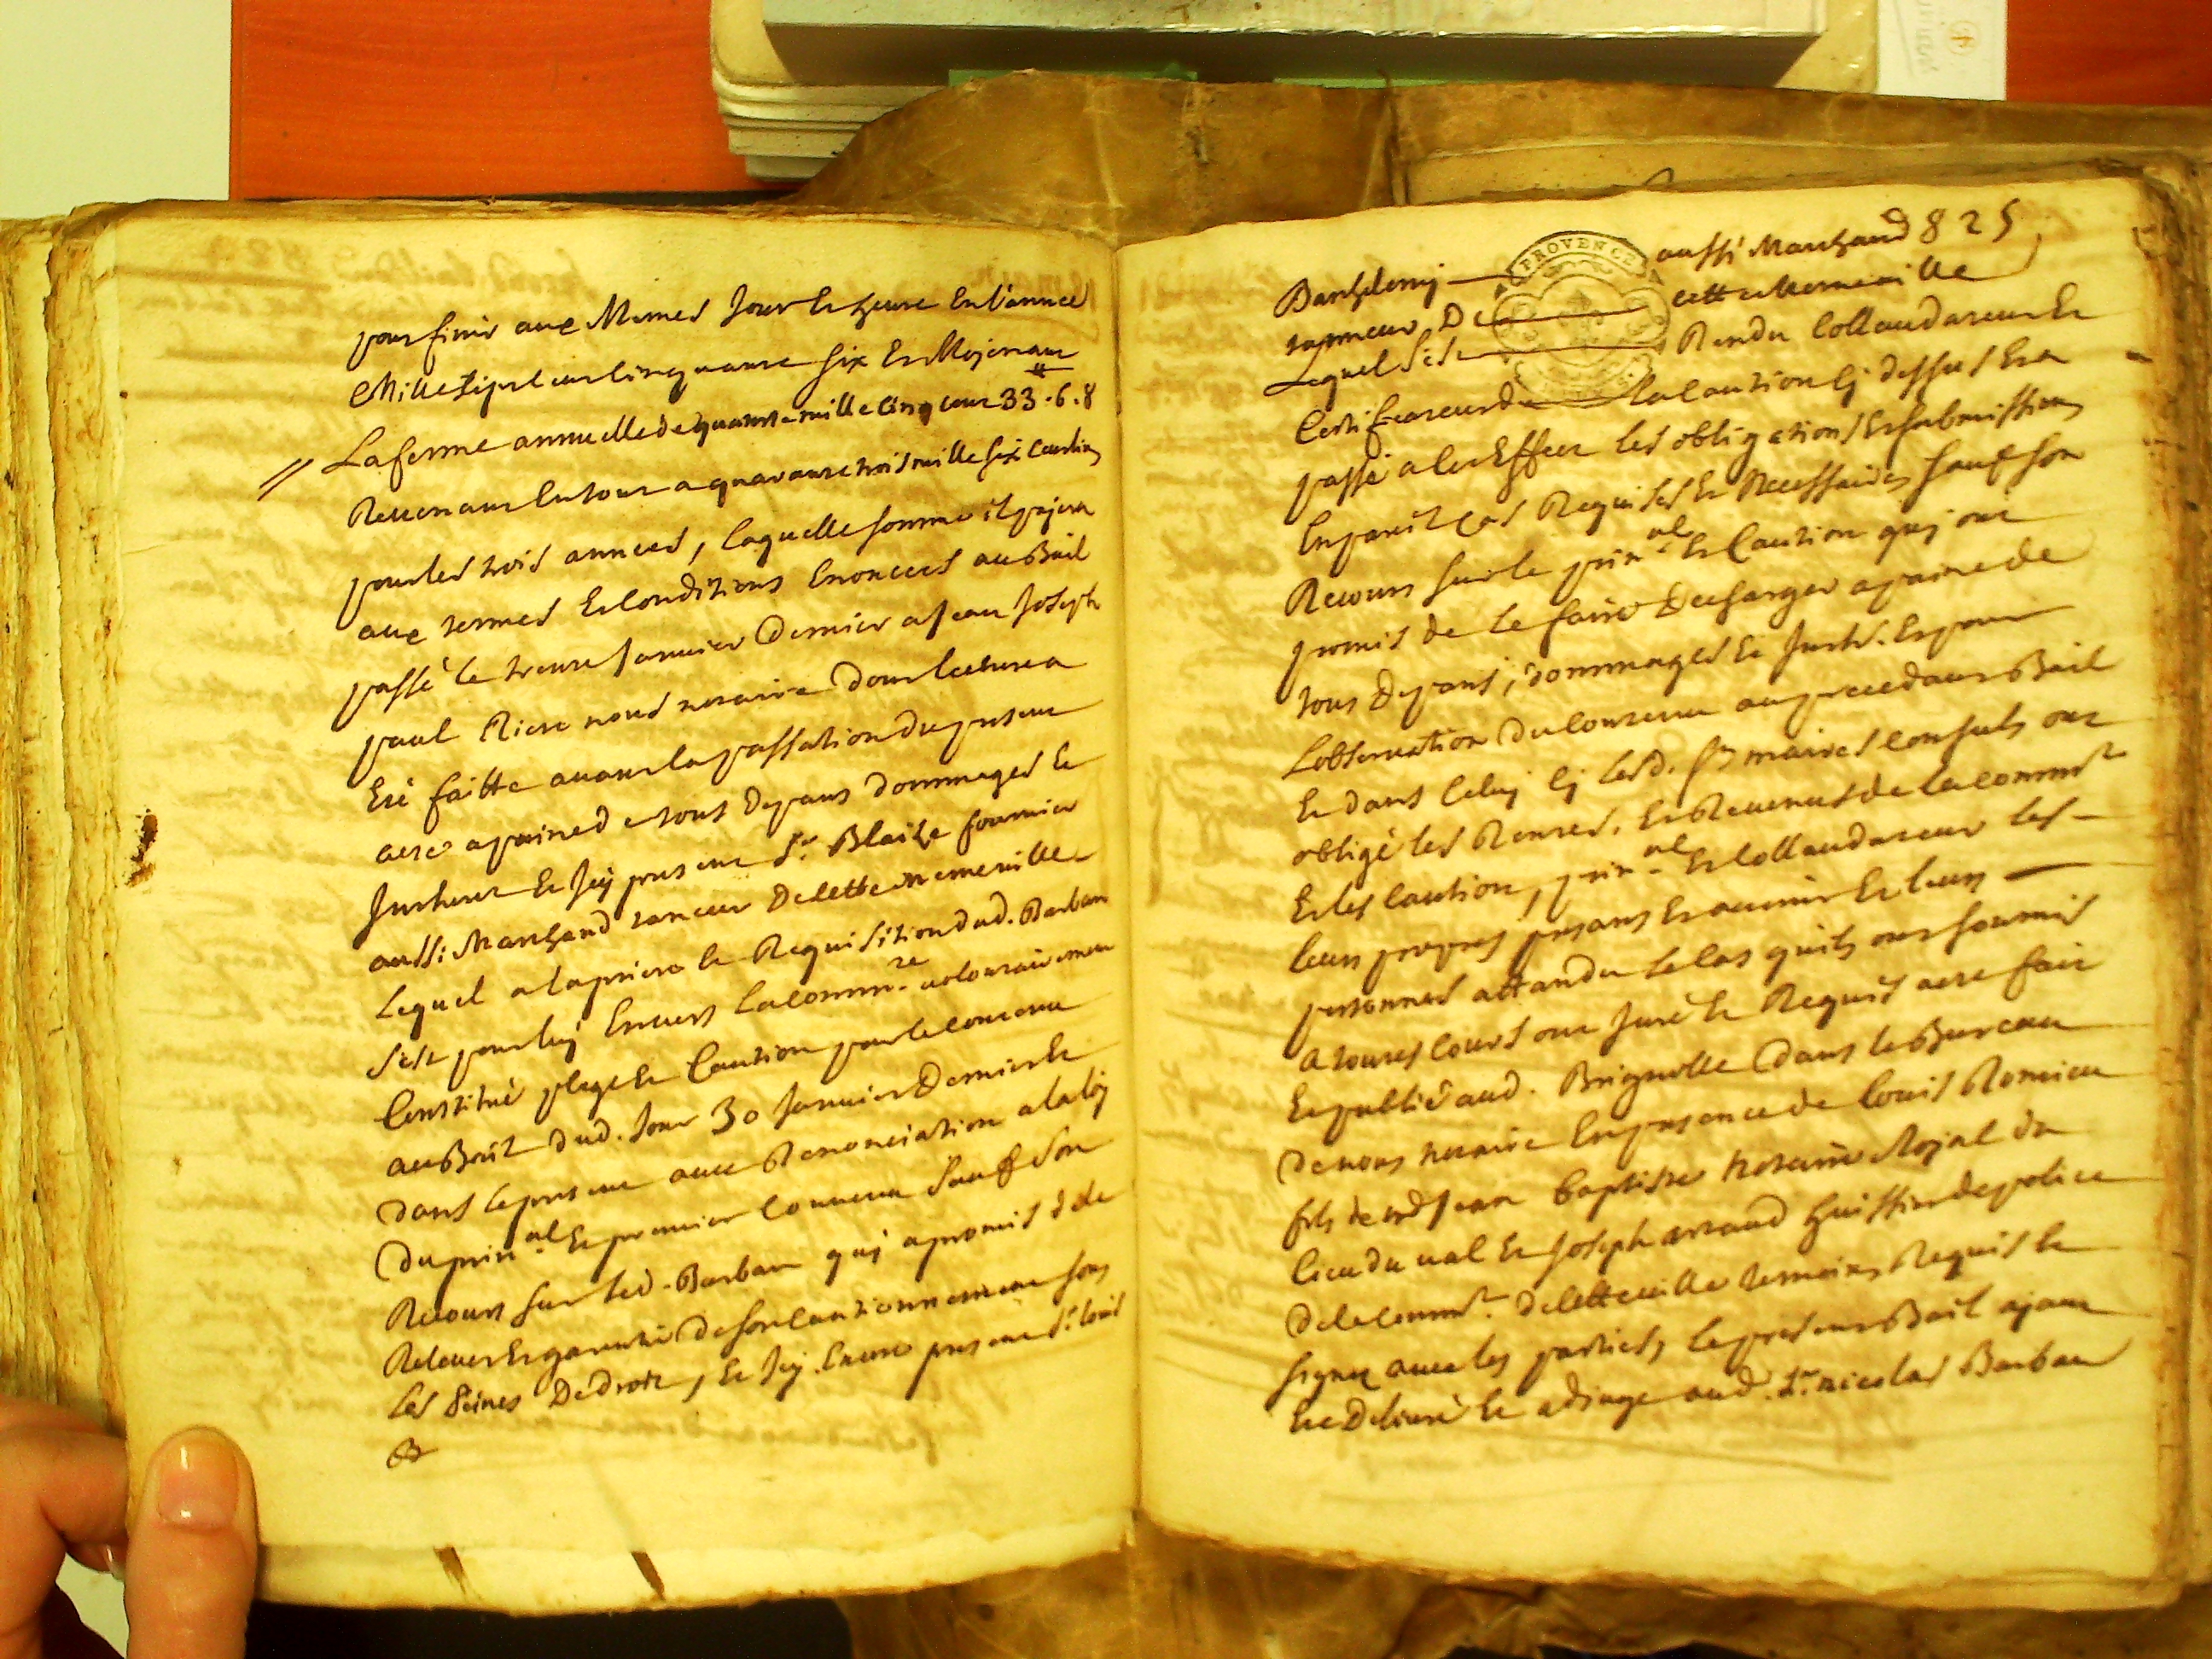 pour finir aux Memes Jour Et heure En l'année
Mille sept cent cinquante six Et Mojenant
La ferme annuelle de quatorze mille cinq cent 33.6.8
Revenant En tout a quarante trois mille six Cent
pour les trois années, laquelle somme il pajera
aux termes Et Conditions Enoncées au Bail
passé le trente Janvier Dernier a Jean Joseph
paul nous notaire dont lecture a
Eté faitte avant la passation du present
acte a peine de tous Depans dommages Et
Jnterest Et Jcy present Sr. Blaise fournier
aussi Marchand taneur De cette meme ville
Lequel a la priere Et Requisition dud. Barbau
s'est pour luy Envers La comm.te volontairement
Constitué plege Et Caution pour le contenu
au Bail dud. Jour 30 Janvier Dernier Et
dans le present avec Renonciation a la loy
Du prin.al Et premier Convenu Sauf Son
Recours sur led. Barbau quj a promis de le
Relever Et garentir De son Cautionnement sous
Les Peines De Droit, Et Jcy Encore present Sr. louis
825
Barthelemy aussi Marchand
tanneur De cette meme ville
Lequel s'est Rendu Collaudateur Et
PROVENCE
Certificateur de la Caution Cj dessus Et a
passé a cet Effet les obligations Et submissions
En pareil Cas Requises Et Necessaires sauf son
Recours sur le prin.al Et Caution quj ont
promis de le faire Decharger a peine de
tous Depans, dommages Et Jnterets. Et pour
L'observation du Contenu au precedant Bail
Et dans Celuy Cj Lesd. Srs maires Consuls ont
obligé les Rentes, Et Revenus de la commté
Et les Caution, prin.al Et Collaudateur les
leurs propres presans Et avenir Et leurs
personnes attandu le Cas quils ont soumis
a toutes Cours ont Juré Et Requis acte fait
Et publié aud. Brignolle Dans le Bureau
De nous notaire En presence de Louis Romieu
fils de Jean baptiste notaire Royal du
lieu du val Et Joseph arnaud huissier de police
De la commté. De cette ville temoins Requis Et
signez avec les parties, le present Bail ajant
Eté Delivré Et adjugé aud. Sr. nicolas Barbau